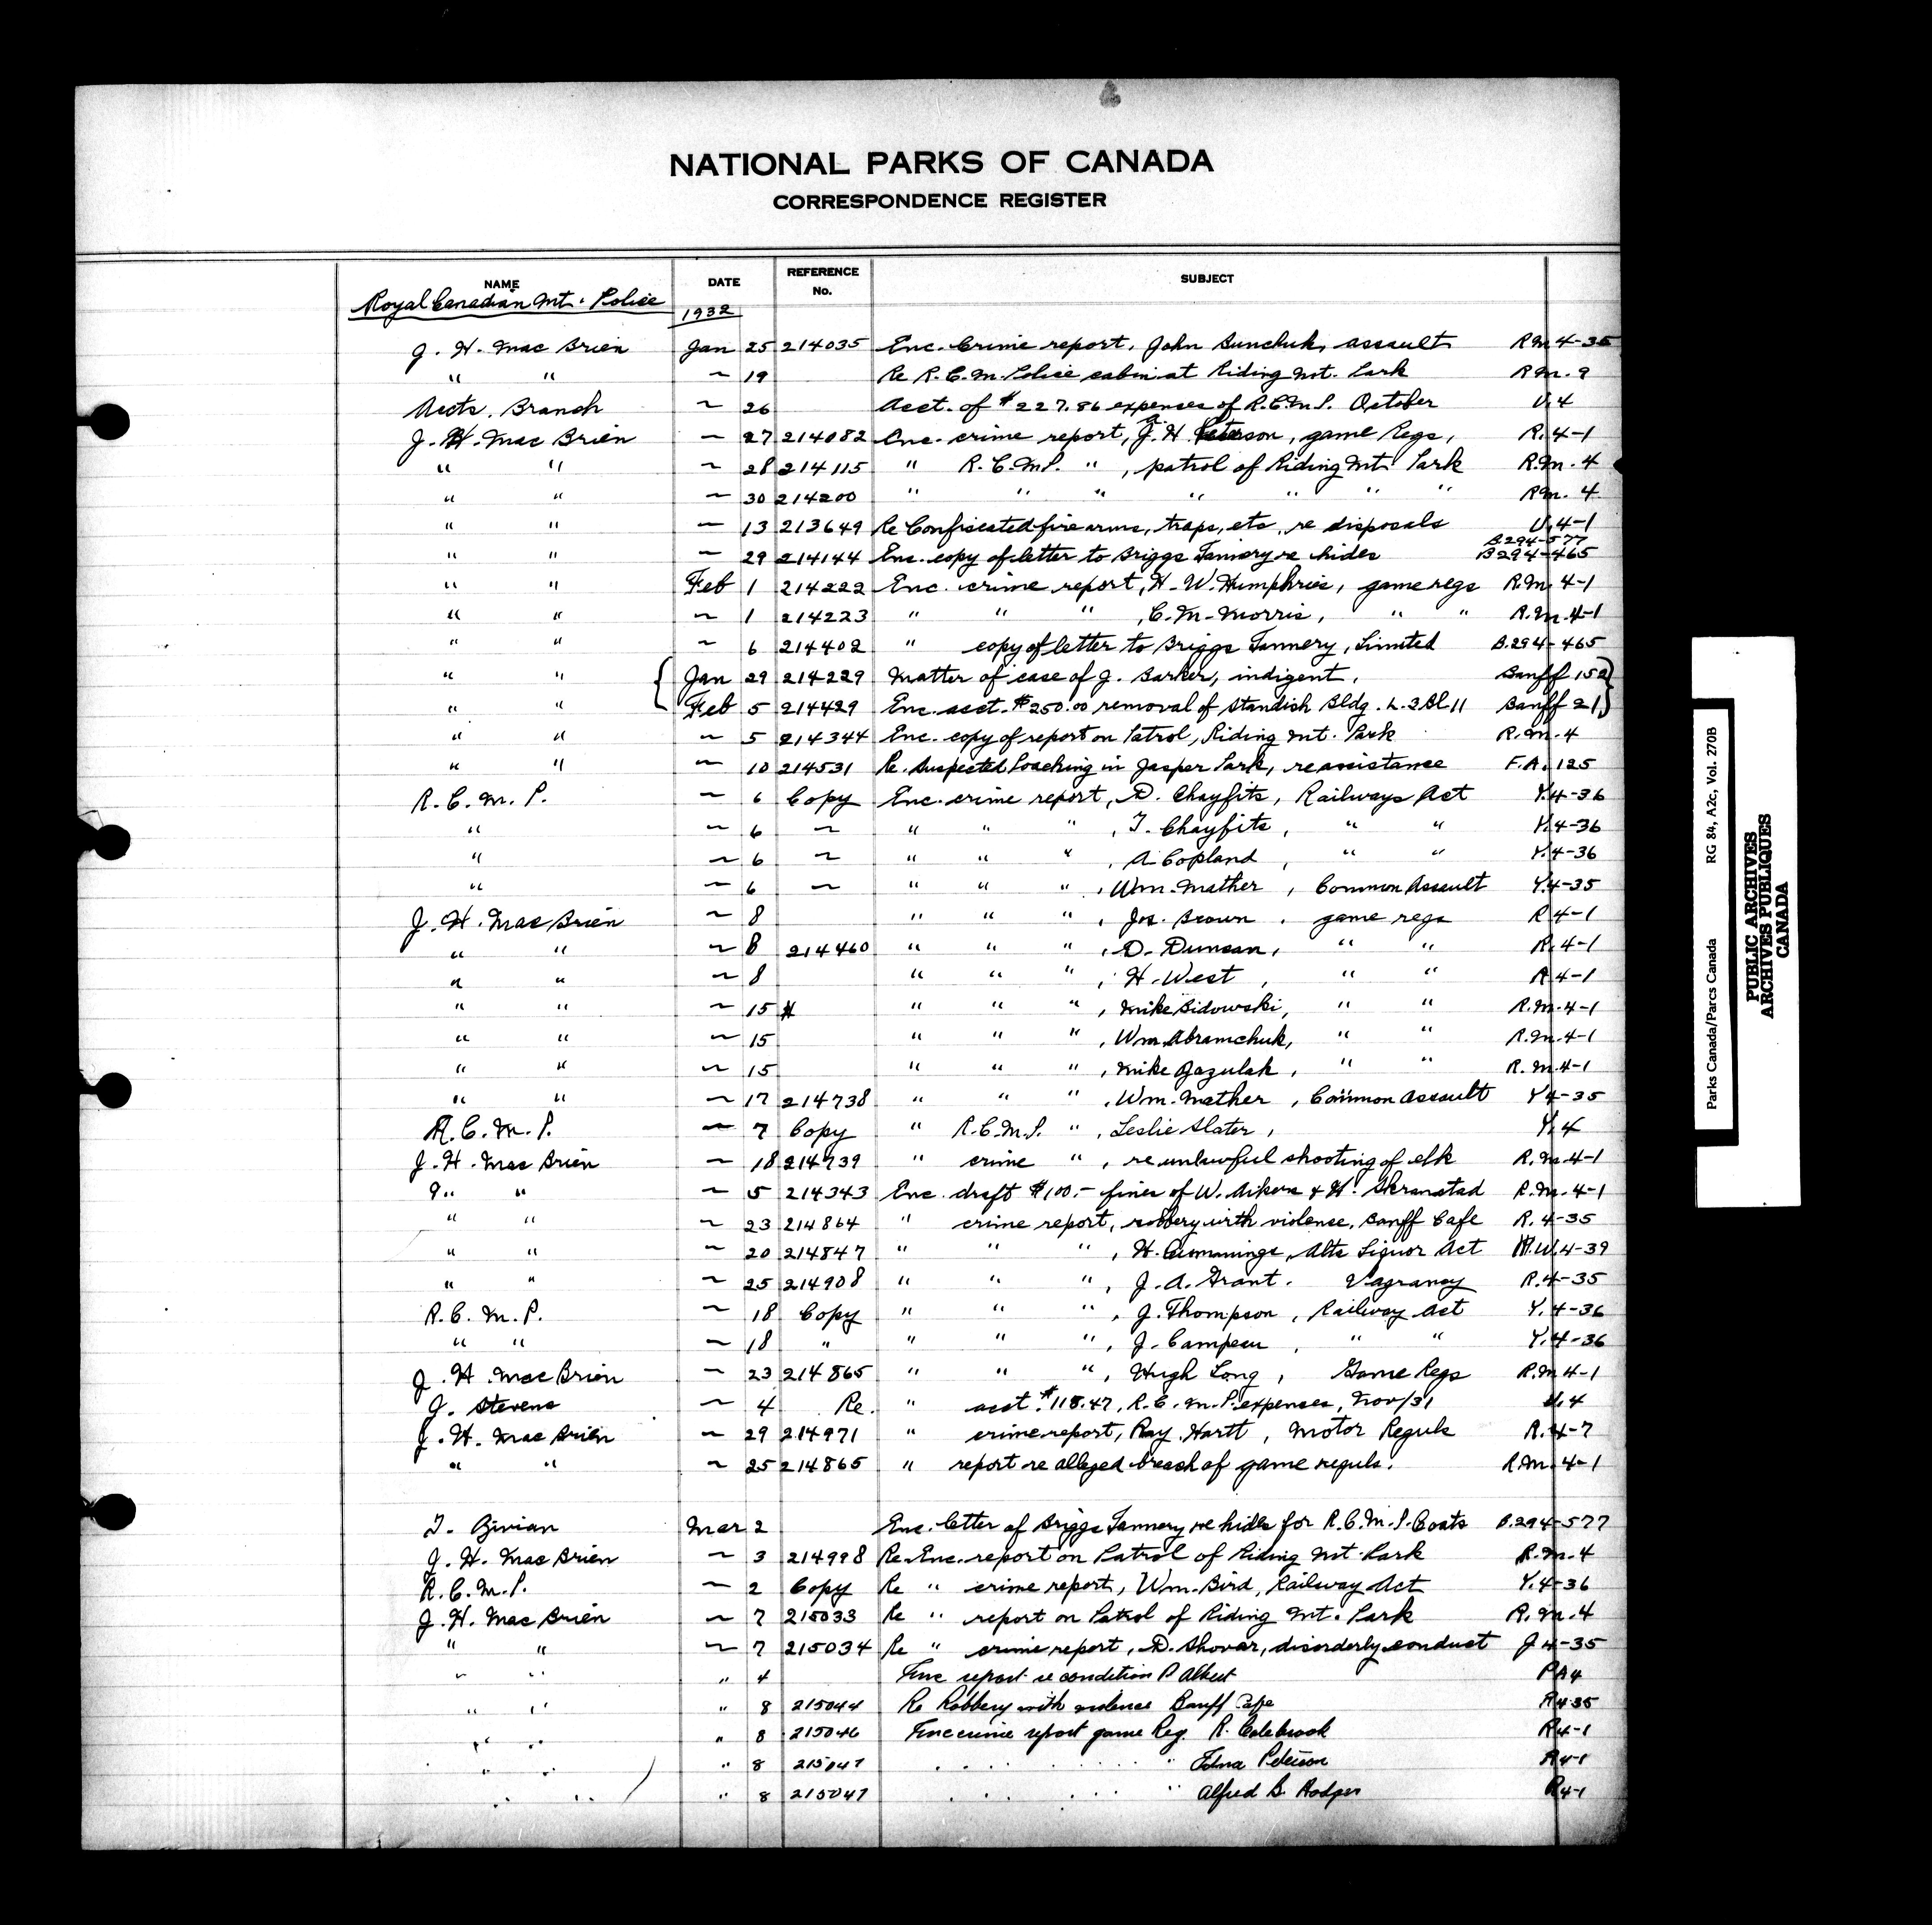 NATIONAL PARKS OF CANADA
CORRESPONDENCE REGISTER
NAME DATE REFERENCE No. SUBJECT
Royal Canadian Mt. Police 1932
J. H. MacBrien Jan 25 214035 Enc. Crime report, John Sunchuk, assault R.M. 4-35
" " ~ 19 Re R.C.M. Police cabin at Riding Mt. Park R.M. 9
Accts. Branch ~ 26 Acct. of $227.86 expenses of R.C.M.P. October U.4
J. H. MacBrien ~ 27 214082 Enc. crime report, J. H. Peterson, game Regs, R. 4-1
" " ~ 28 214115 " R.C.M.P. ", patrol of Riding Mt. Park R.M. 4
" " ~ 30 214200 " " " " " " " R.M. 4
" " ~ 13 213649 Re Confiscated firearms, traps, etc, re disposals U.4-1
B294-577
" " ~ 29 214144 Enc. copy of letter to Briggs Tannery re hides B294-465
" " Feb 1 214222 Enc. crime report, H. W. Humphries, game regs R.M. 4-1
" " ~ 1 214223 " " ", C. M. Morris, " " R.M. 4-1
" " ~ 6 214402 " copy of letter to Briggs Tannery, Limited B.294-465
" " { Jan 29 214229 Matter of case of J. Barker, indigent, Banff 152 }
" " { Feb 5 214429 Enc. acct. $250.00 removal of Standish Bldg. L. 2 Bl 11 Banff 21 }
" " ~ 5 214344 Enc. copy of report on Patrol, Riding Mt. Park R.M. 4
" " ~ 10 214531 Re. Suspected Poaching in Jasper Park, re assistance F.A. 125
R. C. M. P. ~ 6 Copy Enc. crime report, D. Chayfits, Railways Act Y.4-36
" ~ 6 ~ " " ", T. Chayfits, " " Y.4-36
" ~ 6 ~ " " ", A Copland, " " Y.4-36
" ~ 6 ~ " " ", Wm. Mather, Common Assault Y.4-35
J. H. MacBrien ~ 8 " " ", Jos. Brown, game regs R 4-1
" " ~ 8 214460 " " ", D. Duncan, " " R. 4-1
" " ~ 8 " " ", H. West, " " R 4-1
" " ~ 15 " " ", Mike Bidowski, " " R.M. 4-1
" " ~ 15 " " ", Wm. Abramchuk, " " R.M. 4-1
" " ~ 15 " " ", Mike Gazulak, " " R.M. 4-1
" " ~ 17 214738 " " ", Wm. Mather, Common Assault Y 4-35
R. C. M. P. ~ 7 Copy " R.C.M.P. ", Leslie Slater, Y.4
J. H. MacBrien ~ 18 214739 " crime ", re unlawful shooting of elk R.M. 4-1
" " ~ 5 214343 Enc. draft $100.- fines of W. Aikens & H. Skranstad R.M. 4-1
" " ~ 23 214864 " crime report, robbery with violence, Banff Cafe R. 4-35
" " ~ 20 214847 " " ", H. Cummings, Alta Liquor Act W. 4-39
" " ~ 25 214908 " " ", J. A. Grant. Vagrancy R.4-35
R. C. M. P. ~ 18 Copy " " ", J. Thompson, Railway Act Y.4-36
" " ~ 18 " " " ", J. Campeau, " " Y.4-36
J. H. MacBrien ~ 23 214865 " " ", Hugh Long, Game Regs R.M 4-1
J. Stevens ~ 4 Re. " acct. $118.47, R.C.M.P. expenses, Nov/31 U.4
J. H. MacBrien ~ 29 214971 " crime report, Ray Hartt, Motor Reguls R.4-7
" " ~ 25 214865 " report re alleged breach of game reguls. R.M. 4-1
T. Mar 2 Enc. letter of Briggs Tannery re hides for R.C.M.P. Coats B.294-577
J. H. MacBrien ~ 3 214998 Re. Enc. report on Patrol of Riding Mt. Park R.M. 4
R.C.M.P. ~ 2 Copy Re " crime report, Wm. Bird, Railway Act Y.4-36
J. H. MacBrien ~ 7 215033 Re " report on Patrol of Riding Mt. Park R.M. 4
" " ~ 7 215034 Re " crime report, D. Shovar, disorderly conduct J 4-35
" " " 4 Enc report re condition P Albert PA4
" " " 8 215044 Re Robbery with violence Banff Cafe R4-35
" " " 8 215046 Enc crime report game Reg. R. Colebrook R4-1
" " " 8 215047 " Edna Peterson R4-1
" " " 8 215047 " Alfred B. Hodges R4-1
Parks Canada/Parcs Canada RG 84, A2c, Vol. 270B
PUBLIC ARCHIVES
ARCHIVES PUBLIQUES
CANADA